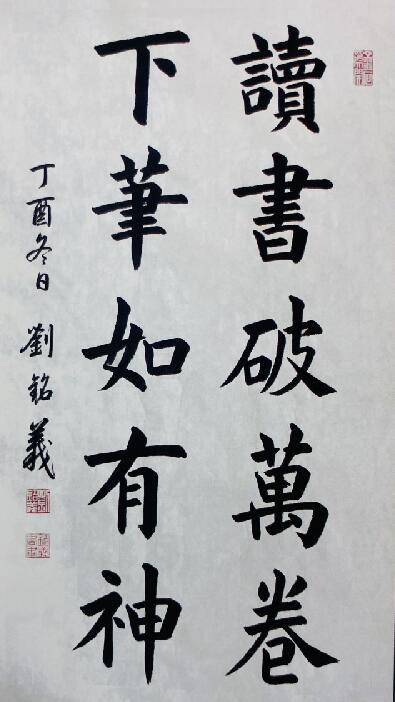 讀書破萬卷
下筆如有神
丁酉冬日 劉銘義